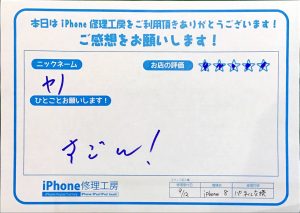 本日は iPhone 修理工房をご利用頂きありがとうございます!
ご感想をお願いします!
ニックネーム
お店の評価
ヤノ
ひとことお願いします!
すごい!
iPhone修理工房
iPhone 8